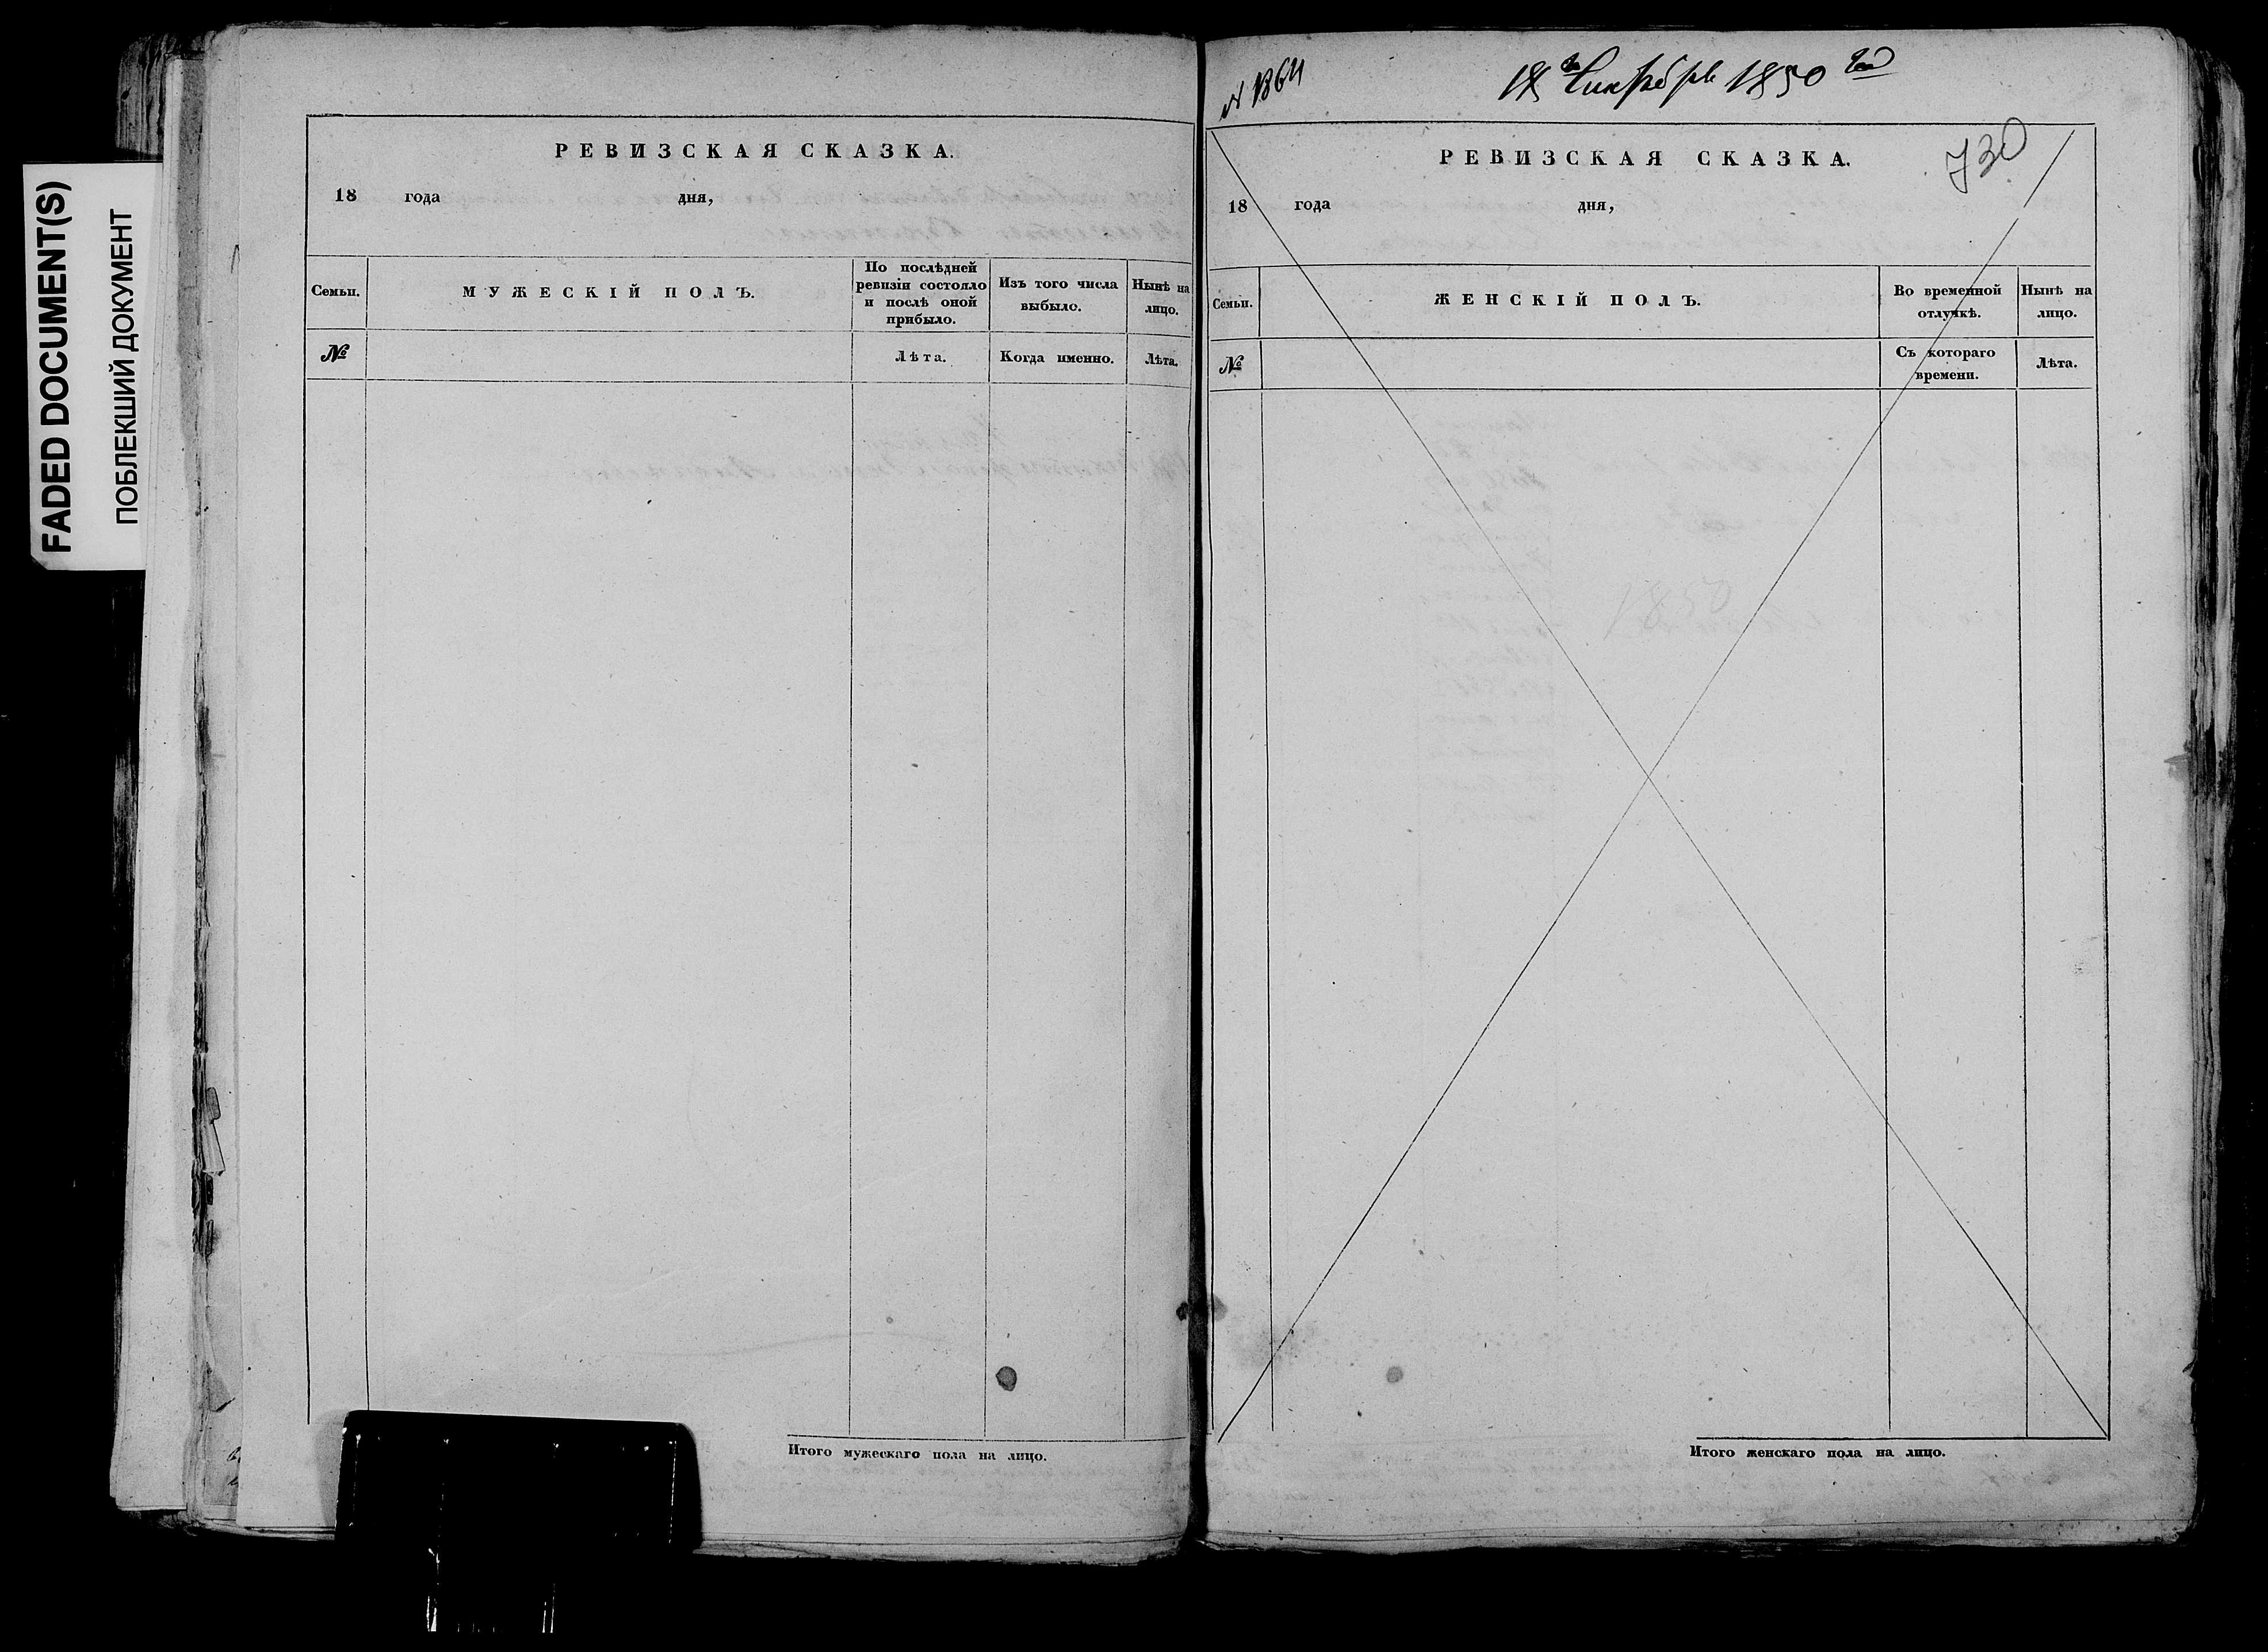 FADED DOCUMENT(S)
ПОБЛЕКШИЙ ДОКУМЕНТ
РЕВИЗСКАЯ СКАЗКА.
18 года дня,
Семьи.
МУЖЕСКІЙ ПОЛЪ.
По послѣдней
ревизіи состояло
и послѣ оной
прибыло.
Изъ того числа
выбыло.
Нынѣ на
лицо.
№
Лѣта.
Когда именно.
Лѣта.
Итого мужескаго пола на лицо.
1850
730
РЕВИЗСКАЯ СКАЗКА.
18 года дня,
Семьи.
ЖЕНСКІЙ ПОЛЪ.
Во временной
отлучкѣ.
Нынѣ на
лицо.
№
Съ котораго
времени.
Лѣта.
1850
Итого женскаго пола на лицо.